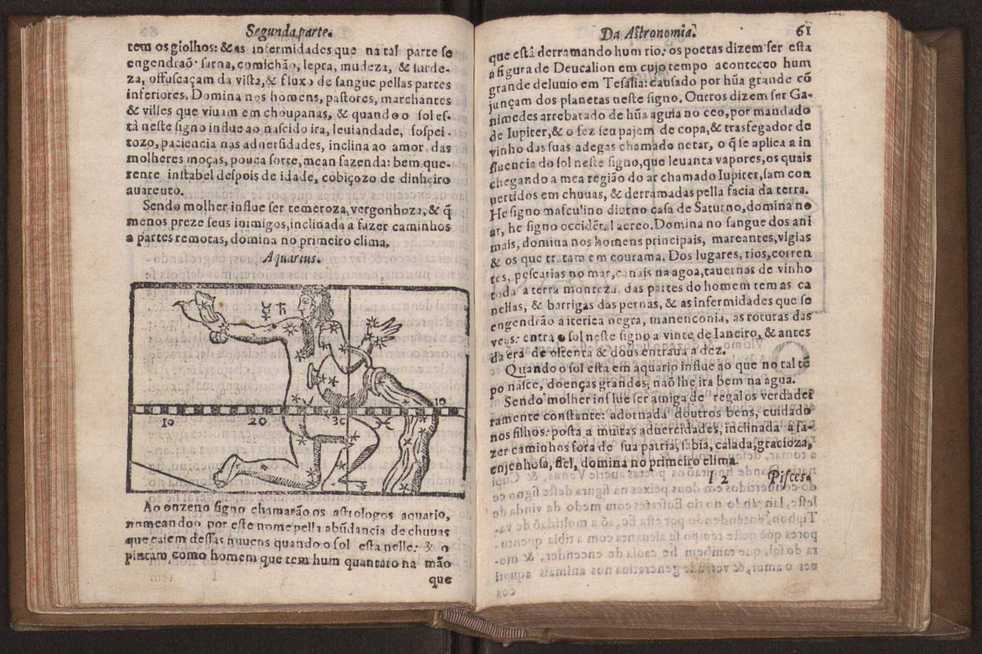 Segunda parte.
tem os giolhos: & as infermidades que na tal parte se
engendraõ: sarna, comichão, lepra, mudeza, & surde-
za, offuscaçam da vista, & fluxo de sangue pellas partes
inferiores. Domina nos homens, pastores, marchantes
& villes que viuam em choupanas, & quando o sol es-
tà neste signo influe ao nascido ira, leuiandade, sospei-
tozo, paciencia nas aduersidades, inclina ao amor das
molheres moças, pouca sorte, mean fazenda: bem que-
rente instabel despois de idade, cobiçozo de dinheiro
auarento.
Sendo molher influe ser temeroza, vergonhoza, & q̃
menos preze seus inimigos, inclinada a fazer caminhos
a partes remotas, domina no primeiro clima.
Aquarius.
☿ ♄
10
10 20 30
Ao onzeno signo chamarão os astrologos aquario,
nomeando o por este nome pella abũdancia de chuuas
que caiem dessas nuuens quando o sol esta nelle: & o
pintam como homem que tem hum quantaro na mão
que
Da Astronomia. 61
que està derramando hum rio: os poetas dizem ser esta
a figura de Deucalion em cujo tempo aconteceo hum
grande deluuio em Tesalia: causado por hũa grande cõ
junçam dos planetas neste signo. Outros dizem ser Ga-
nimedes arrebatado de hũa aguia no ceo, por mandado
de Iupiter, & o fez seu pajem de copa, & trasfegador de
vinho das suas adegas chamado netar, o q̃ se aplica a in
fluencia do sol neste signo, que leuanta vapores, os quais
chegando a mea região do ar chamado Iupiter, sam con
uertidos em chuuas, & derramadas pella facia da terra.
He signo masculino diurno casa de Saturno, domina no
ar, he signo occidẽtal aereo. Domina no sangue dos ani
mais, domina nos homens principais, mareantes, vigias
& os que tratam em courama. Dos lugares, rios, corren
tes, pescarias no mar, canais na agoa, tauernas de vinho
toda a terra monteza. das partes do homem tem as ca
nellas, & barrigas das pernas, & as infermidades que se
engendrão a iterica negra, manenconia, as roturas das
veas: entra o sol neste signo a vinte de Ianeiro, & antes
da era de oitenta & dous entraua a dez.
Quando o sol esta em aquario influe ao que no tal tẽ
po nasce, doenças grandes, não lhe ira bem na agua.
Sendo molher influe ser amiga de regalos verdadei
ramente constante: adornada doutros bens, cuidado
nos filhos: posta a muitas aduercidades, inclinada a fa-
zer caminhos fora de sua patria, sabia, calada, gracioza,
enjenhosa, fiel, domina no primeiro clima.
I 2 Pisces.